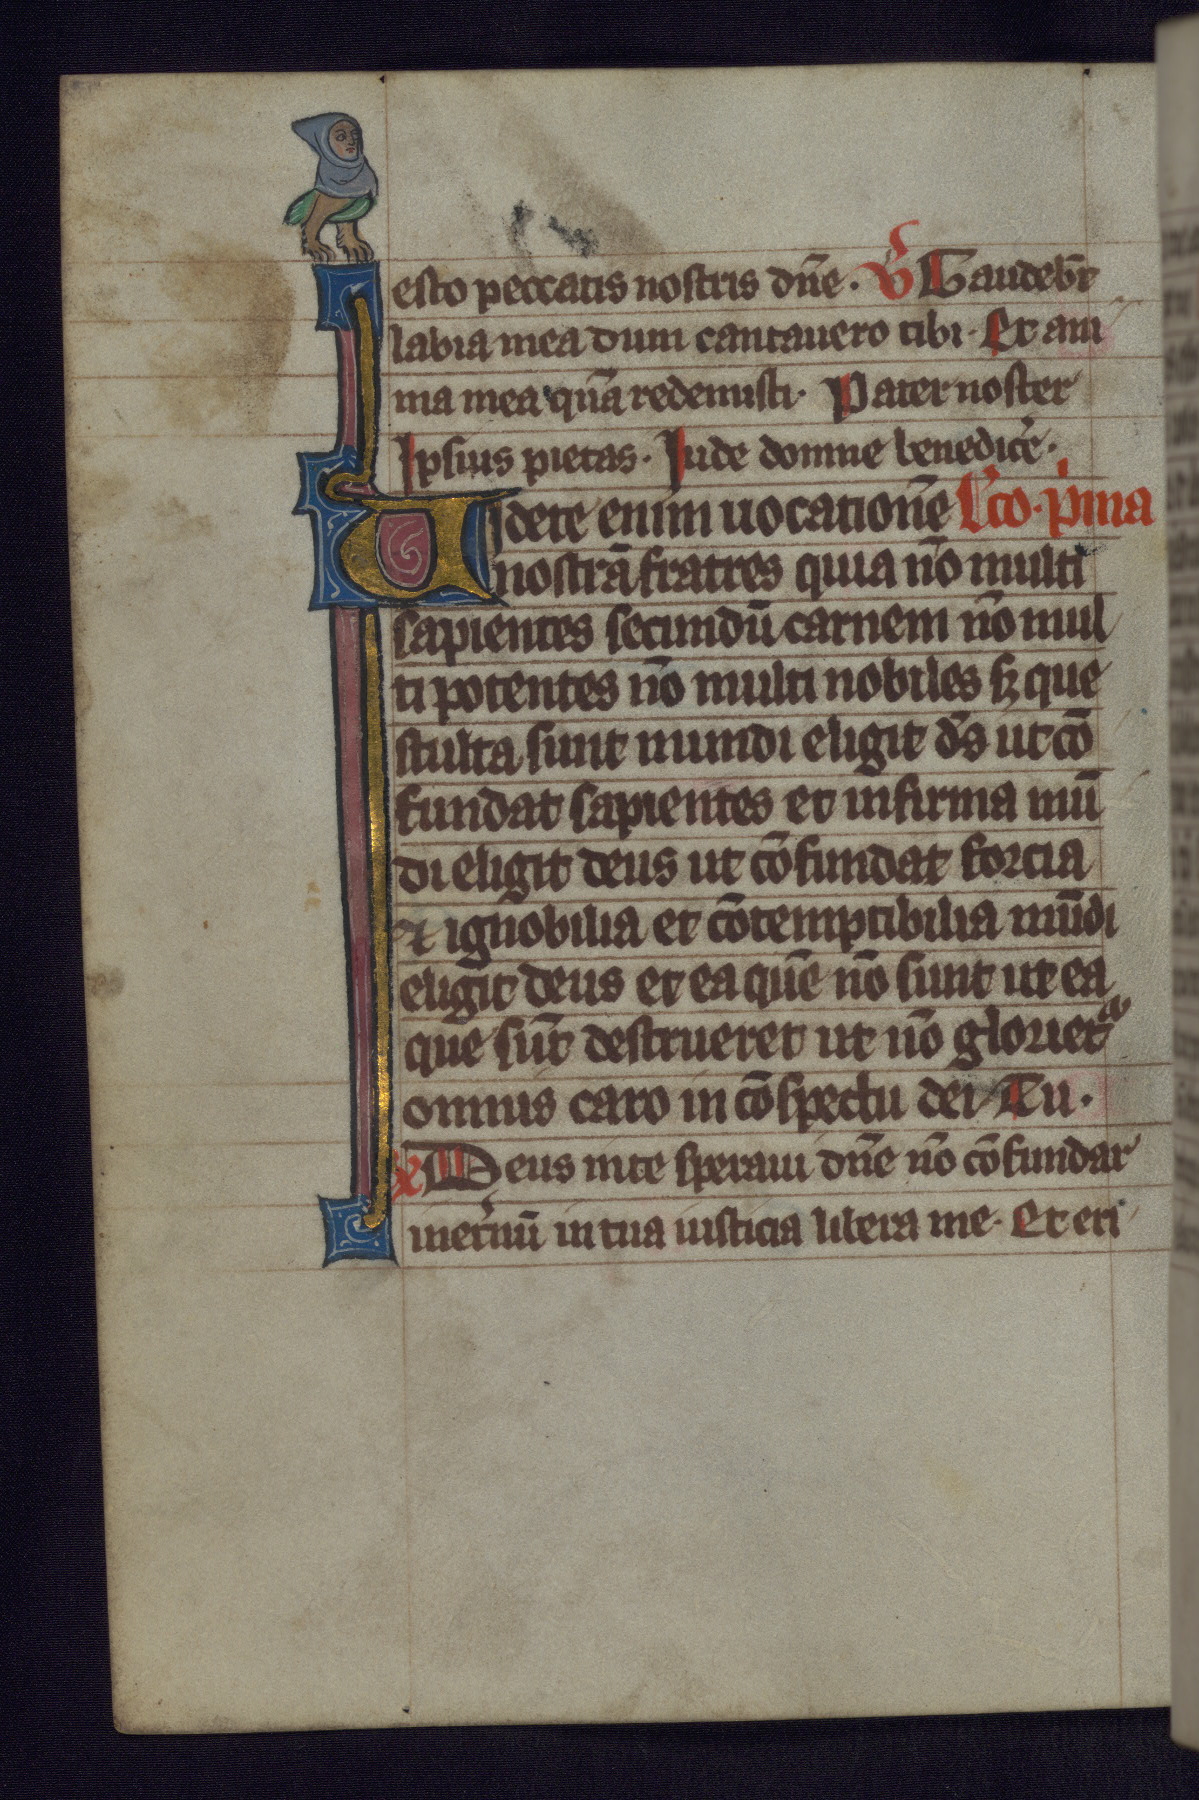 esto peccatis nostris dn̄e. V̓ Gaudeb̄t
labia mea dum cantauero tibi. Et ani
ma mea quā redemisti. Pater noster
Ipsius pietas. Iude domne benedicẽ.
Uidete enim uocationē Lc̄o. p̓ma
nostrā fratres quia nō multi
sapientes secundū carnem nō mul
ti potentes nō multi nobiles sꝫ que
stulta sunt mundi eligit d̄s ut cō
fundat sapientes et infirma mū
di eligit deus ut cōfundat forcia
Et ignobilia et cōtemptibilia mūdi
eligit deus et ea quē nō sunt ut ea
que sūt destrueret ut nō glorietᷣ
omnis caro in cōspectu dei Tu.
R̸ Deus in te speraui dn̄e nō cōfundar
inet̓nū in tua iusticia libera me. Et eri